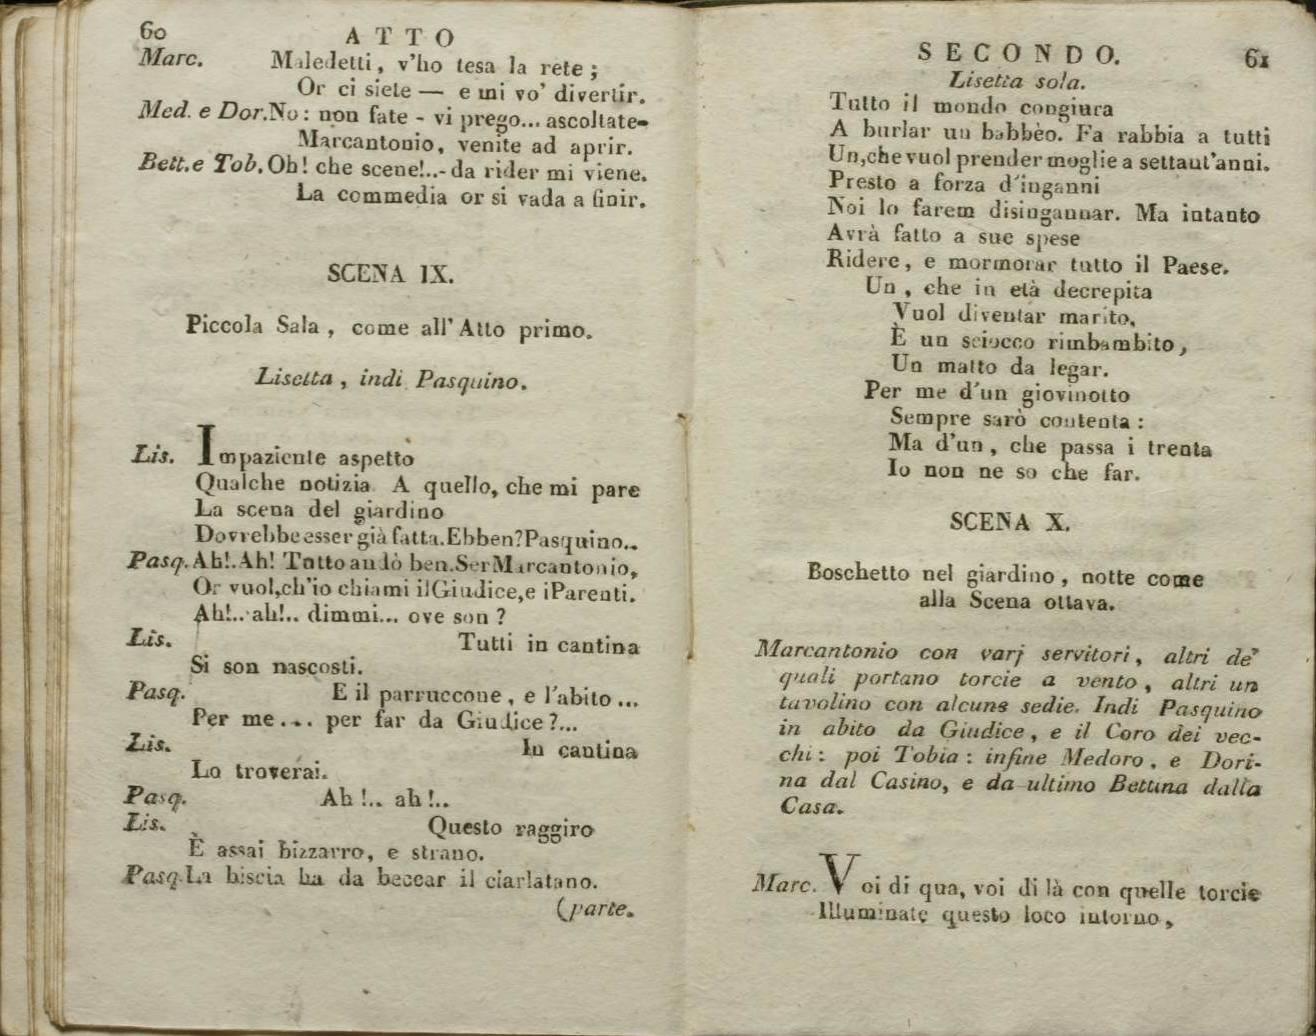 60
ATTO
Marc. Maledetti, v'ho tesa la rete;
Or ci siete — e mi vo' divertir.
Med. e Dor. No: non fate - vi prego... ascoltate-
Marcantonio, venite ad aprir.
Bett. e Tob. Oh! che scene!..- da rider mi viene.
La commedia or si vada a finir.
SCENA IX.
Piccola Sala, come all'Atto primo.
Lisetta, indi Pasquino.
Lis. Impaziente aspetto
Qualche notizia. A quello, che mi pare
La scena del giardino
Dovrebbe esser già fatta. Ebben? Pasquino..
Pasq. Ah!. Ah! Tutto andò ben. Ser Marcantonio,
Or vuol, ch'io chiami il Giudice, e i Parenti.
Ah!.. ah!.. dimmi... ove son?
Lis. Tutti in cantina
Si son nascosti.
Pasq. E il parruccone, e l'abito...
Per me.... per far da Giudice?...
Lis. In cantina
Lo troverai.
Pasq. Ah!.. ah!..
Lis. Questo raggiro
È assai bizzarro, e strano.
Pasq. La biscia ha da beccar il ciarlatano.
(parte.
SECONDO. 61
Lisetta sola.
Tutto il mondo congiura
A burlar un babbèo. Fa rabbia a tutti
Un, che vuol prender moglie a settant'anni.
Presto a forza d'inganni
Noi lo farem disingannar. Ma intanto
Avrà fatto a sue spese
Ridere, e mormorar tutto il Paese.
Un, che in età decrepita
Vuol diventar marito,
È un sciocco rimbambito,
Un matto da legar.
Per me d'un giovinotto
Sempre sarò contenta:
Ma d'un, che passa i trenta
Io non ne so che far.
SCENA X.
Boschetto nel giardino, notte come
alla Scena ottava.
Marcantonio con varj servitori, altri de'
quali portano torcie a vento, altri un
tavolino con alcune sedie. Indi Pasquino
in abito da Giudice, e il Coro dei vec-
chi: poi Tobia: infine Medoro, e Dori-
na dal Casino, e da ultimo Bettina dalla
Casa.
Marc. Voi di qua, voi di là con quelle torcie
Illuminate questo loco intorno,